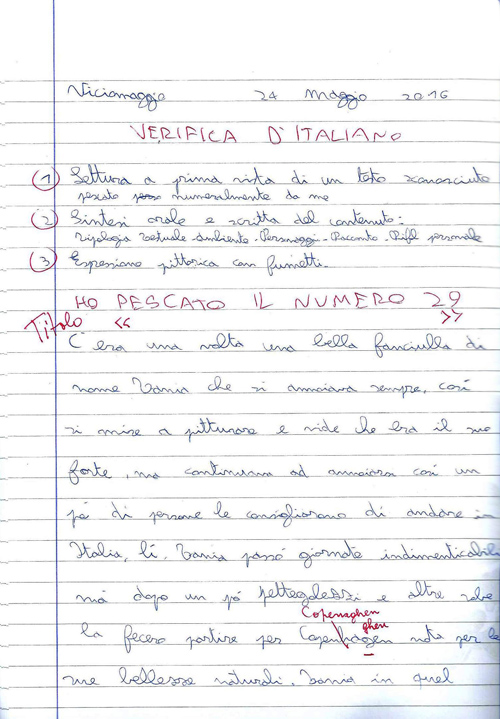 Viciomaggio 24 Maggio 2016
VERIFICA D'ITALIANO
1 Lettura a prima vista di un testo sconosciuto
pescato numeralmente da me
2 Sintesi orale e scritta del contenuto:
Tipologia testuale-Ambiente-Personaggi-Racconto-Rifl personale
3 Espressione pittorica con fumetti.
HO PESCATO IL NUMERO 29
Titolo << >>
C'era una volta una bella fanciulla di
nome Vania che si annoiava sempre, così
si mise a pitturare e vide che era il suo
forte, ma continuava ad annoiarsi così un
pò di persone le consigliarono di andare in
Italia, lì. Vania passò giornate indimenticabili
mà dopo un pò pettegolezzi e altre robe
Copenaghen
ghen
la fecero partire per Copenhagen nota per le
sue bellezze naturali. Vania in quel